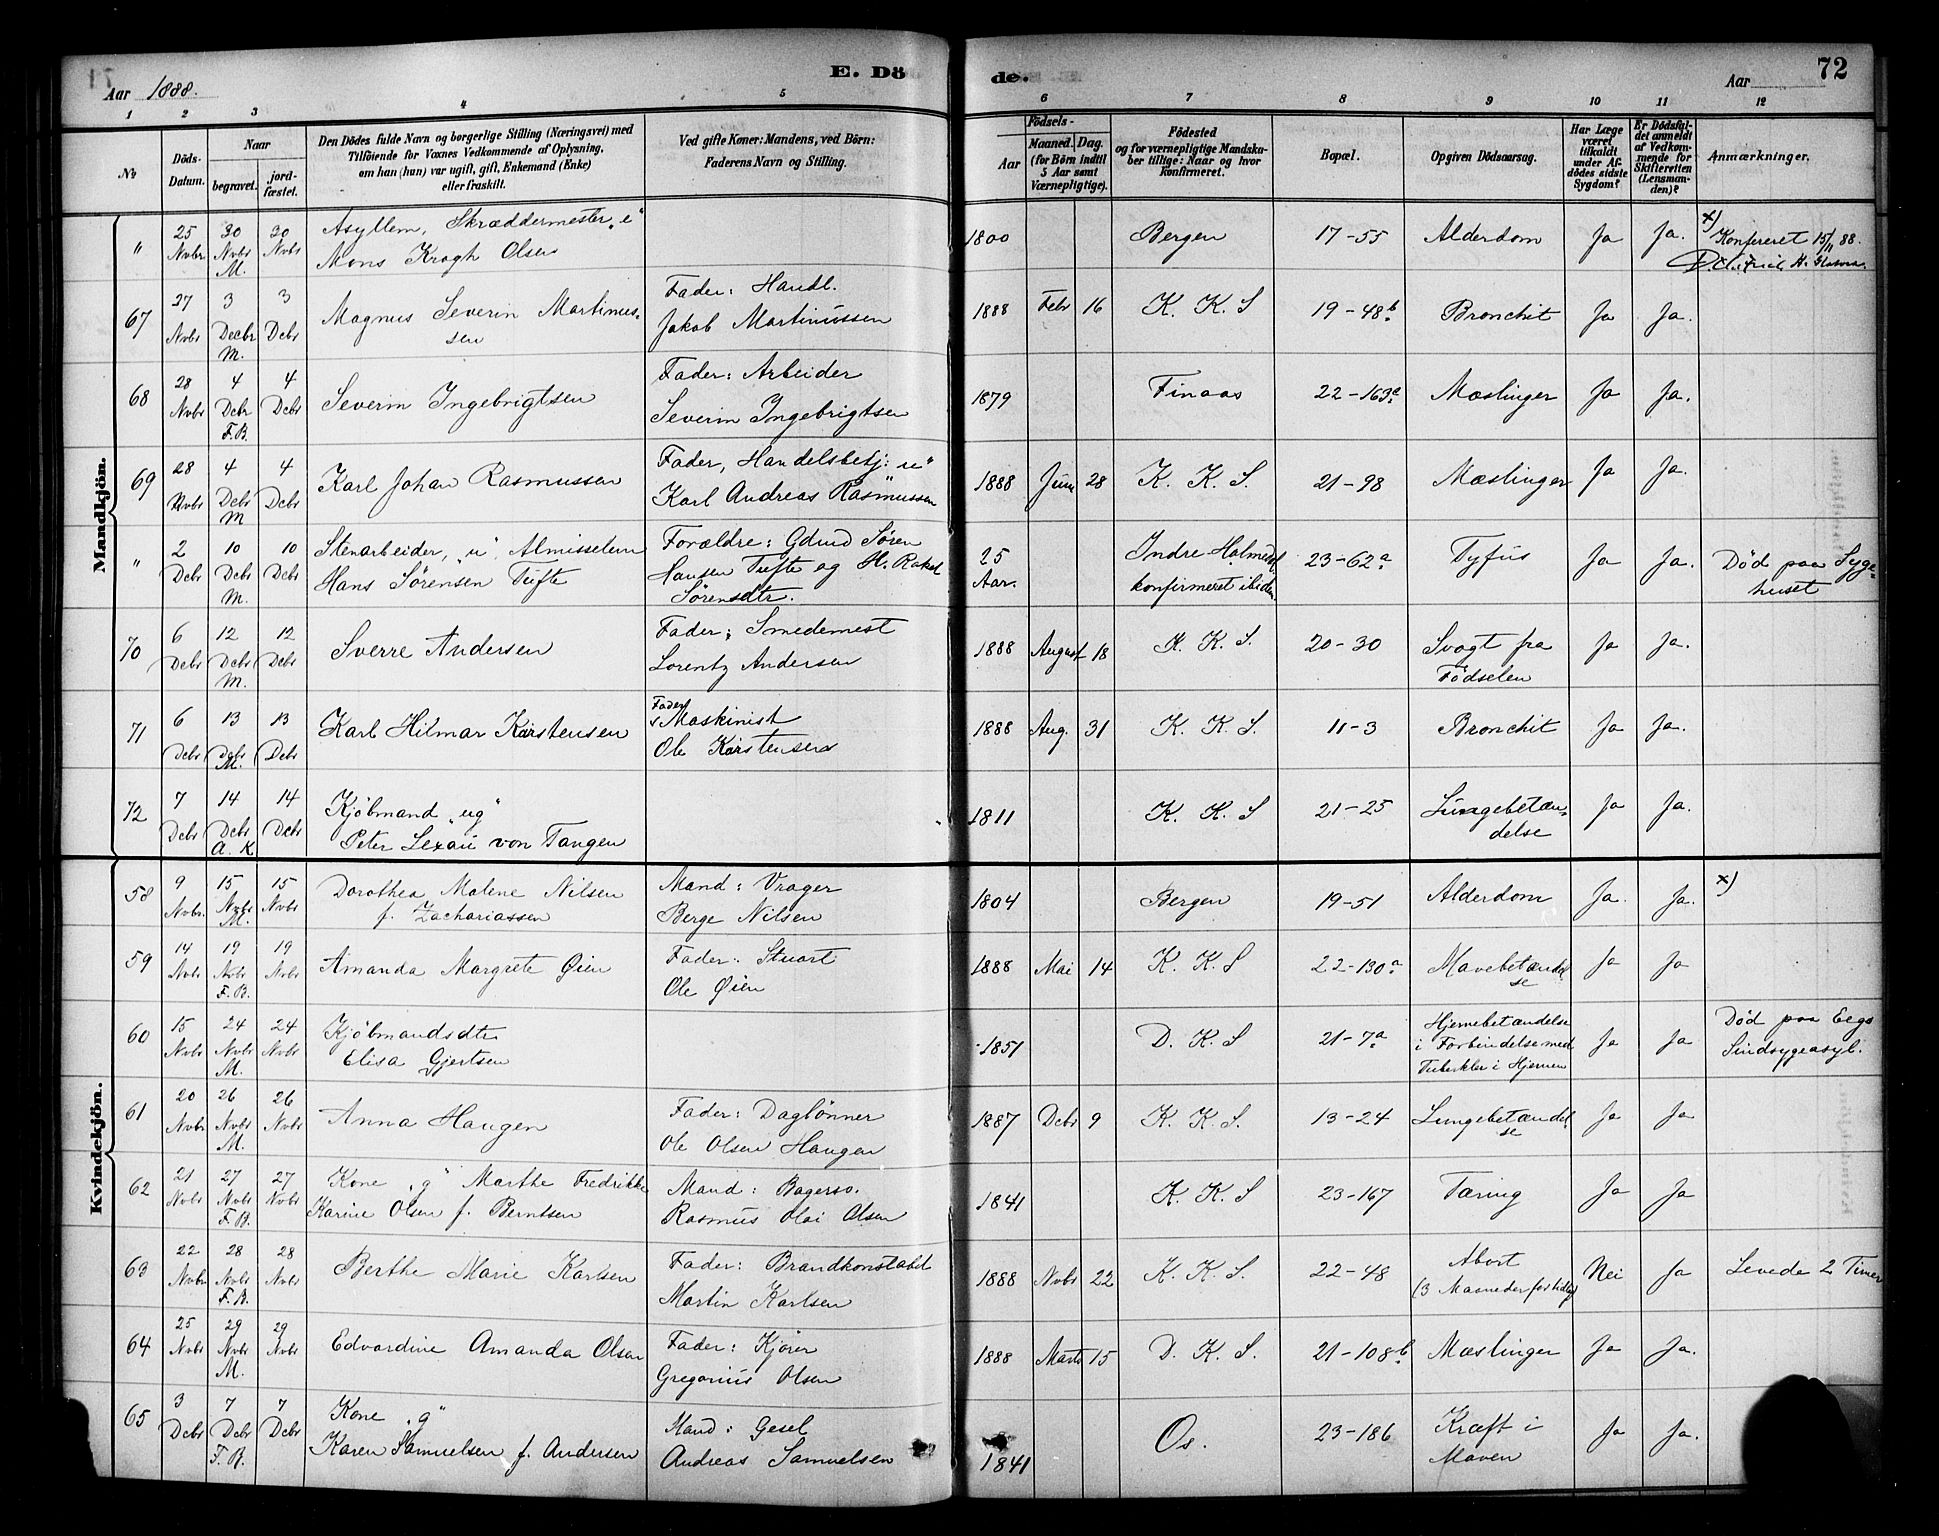 Aar 1888.
E. Dö
de.
Aar
72
1 2 3 4 5 6 7 8 9 10 11 12
No
Döds-
Datum.
Naar
begravet.
jord-
fæstet.
Den Dödes fulde Navn og borgerlige Stilling (Næringsvei) med
Tilföiende for Voxnes Vedkommende af Oplysning,
om han (hun) var ugift, gift, Enkemand (Enke)
eller fraskilt.
Ved gifte Koner: Mandens, ved Börn:
Faderens Navn og Stilling.
Födsels-
Aar
Maaned. Dag.
(for Börn indtil
5 Aar samt
Værnepligtige).
Födested
og for værnepligtige Mandska-
ber tillige: Naar og hvor
konfirmeret.
Bopæl.
Opgiven Dödsaarsag.
Har Læge
været
tilkaldt
under Af-
dödes sidste
Sygdom?
Er Dödsfal-
det anmeldt
af Vedkom-
mende for
Skifteretten
(Lensman-
den)?
Anmærkninger.
Mandkjön.
" 25 Nvbr 30 Nvbr M. 30 Nvbr
Asyllem, Skræddermester „e"
Mons Krogh Olsen
1800 Bergen 17-55 Alderdom Ja Ja.
x) Konfereret 15/11 88.
67 27 Nvbr 3 Decbr M. 3 Dcbr
Magnus Severin Martinus-
sen
Fader: Handl.
Jakob Martinussen
1888 Febr 16 K. K. S 19-48b Bronchit Ja Ja.
68 28 Nvbr 4 Dcbr F.B. 4 Dcbr
Severin Ingebrigtsen
Fader: Arbeider
Severin Ingebrigtsen
1879 Finaas 22-163a Mæslinger Ja Ja.
69 28 Nvbr 4 Dcbr M 4 Dcbr
Karl Johan Rasmussen
Fader, Handelsbetj:
Karl Andreas Rasmussen
1888 Juni 28 K. K. S 21-98 Mæslinger Ja Ja.
" 2 Dcbr 10 Dcbr M. 10 Dcbr
Stenarbeider, „u" Almisselem
Hans Sørensen Tufte
Forældre: Gdmd Søren
Hansen Tufte og H. Rakel
Sørensdtr.
25
Aar.
Indre Holmedal
konfirmeret ibidem
23-62a Tyfus Ja Ja.
Död paa Syge-
huset
70 6 Dcbr 12 Dcbr M. 12 Dcbr
Sverre Andersen
Fader: Smedemest
Lorentz Andersen
1888 August 18 K. K. S. 20-30
Svagt fra
Födselen
Ja Ja.
71 6 Dcbr 13 Dcbr M. 13 Dcbr
Karl Hilmar Karstensen
Fader
Maskinist
Ole Karstensen
1888 Aug. 31 K. K. S. 11-3 Bronchit Ja Ja.
72 7 Dcbr 14 Dcbr A. K 14 Dcbr
Kjöbmand „ug"
Peter Lexau von Tangen
1811 K. K. S 21-25
Lungebetæn-
delse
Ja Ja.
Kvindekjön.
58 9 Nvbr. 15 Nvbr M. 15 Nvbr
Dorothea Malene Nilsen
f. Zachariassen
Mand: Vrager
Berge Nilsen
1804 Bergen 19-51 Alderdom Ja. Ja. x)
59 14 Nvbr 19 Nvbr F.B. 19 Nvbr
Amanda Margrete Øien
Fader: Stuart
Ole Øien
1888 Mai 14 K. K. S 22-130a
Mavebetændel
se
Ja Ja
60 15 Nvbr 24 Nvbr M. 24 Nvbr
Kjöbmandsdtr
Elisa Gjertsen
1851 D. K. S 21-7a
Hjernebetændelse
i Forbindelse med
Tuberkler i Hjernen
Ja Ja
Död paa Eegs
Sindsygeasyl.
61 20 Nvbr 26 Nvbr M. 26 Nvbr
Anna Haugen
Fader: Daglönner
Ole Olsen Haugen
1887 Dcbr 9 K. K. S. 13-24
Lungebetændel
se
Ja Ja
62 21 Nvbr 27 Nvbr F.B. 27 Nvbr
Kone „g" Marthe Fredrikke
Karine Olsen f. Berntsen
Mand: Bagersv.
Rasmus Olai Olsen
1841 K. K. S 23-167 Tæring Ja Ja
63 22 Nvbr 28 Nvbr F.B. 28 Nvbr
Berthe Marie Karlsen
Fader: Brandkonstabel
Martin Karlsen
1888 Nvbr 22 K. K. S. 22-48
Abort
(3 Maaneder for tidlig)
Nei Ja
Levede 2 Timer
64 25 Nvbr 29 Nvbr M. 29 Nvbr
Edvardine Amanda Olsen
Fader: Kjörer
Gregorius Olsen
1888 Marts 15 D. K. S. 21-108b Mæslinger Ja Ja.
65 3 Dcbr 7 Dcbr F.B. 7 Dcbr
Kone „g"
Karen Samuelsen f. Andersen
Mand: Gesel
Andreas Samuelsen
1841 Os. 23-186
Kræft i
Maven
Ja Ja.